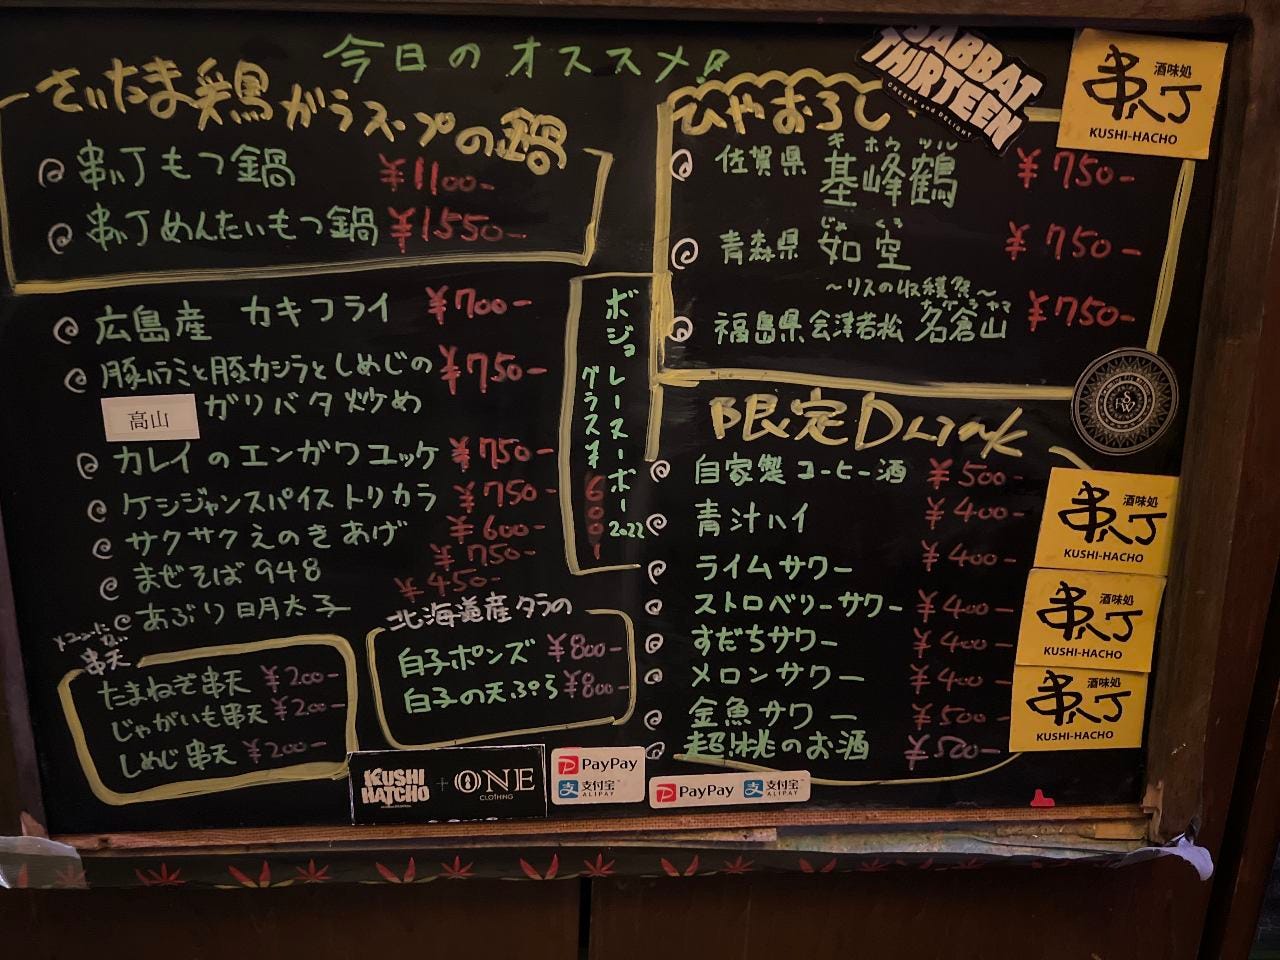 今日のオススメ!!
さいたま鶏ガラスープの鍋
串八丁もつ鍋 ¥1100-
串八丁めんたいもつ鍋 ¥1550-
広島産 カキフライ ¥700-
豚ハラミと豚カシラとしめじの ¥750-
高山 ガリバタ炒め
カレイのエンガワユッケ ¥750-
ケシジャンスパイストリカラ ¥750-
サクサクえのきあげ ¥600-
まぜそば948 ¥750-
あぶり明太子 ¥450-
串天
たまねぎ串天 ¥200-
じゃがいも串天 ¥200-
しめじ串天 ¥200-
北海道産タラの
白子ポンズ ¥800-
白子の天ぷら ¥800-
ボジョレーヌーボー2022
グラス¥600-
ひやおろし
佐賀県 基峰鶴 ¥750-
キホウツル
青森県 如空 ¥750-
じょくう
~リスの収穫祭~
福島県会津若松 名倉山 ¥750-
ナグラヤマ
限定Drink
自家製コーヒー酒 ¥500-
青汁ハイ ¥400-
ライムサワー ¥400-
ストロベリーサワー ¥400-
すだちサワー ¥400-
メロンサワー ¥400-
金魚サワー ¥500-
超桃のお酒 ¥500-
SABBAT
THIRTEEN
CREEPY AND DELIGHT
酒味処
串八丁
KUSHI-HACHO
酒味処
串八丁
KUSHI-HACHO
酒味処
串八丁
KUSHI-HACHO
酒味処
串八丁
KUSHI-HACHO
KUSHI
HATCHO
+ ONE
CLOTHING
PayPay
支付宝
ALIPAY
PayPay
支付宝
ALIPAY